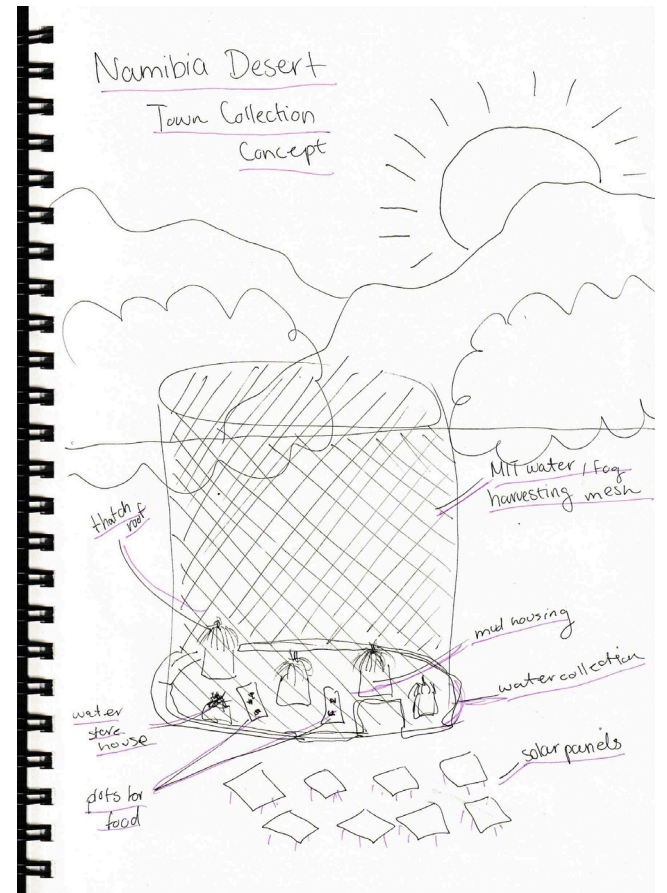 Namibia Desert
Town Collection
Concept
MIT water / fog
harvesting mesh
thatch
roof
mud housing
water collection
water
store
house
solar panels
plots for
food